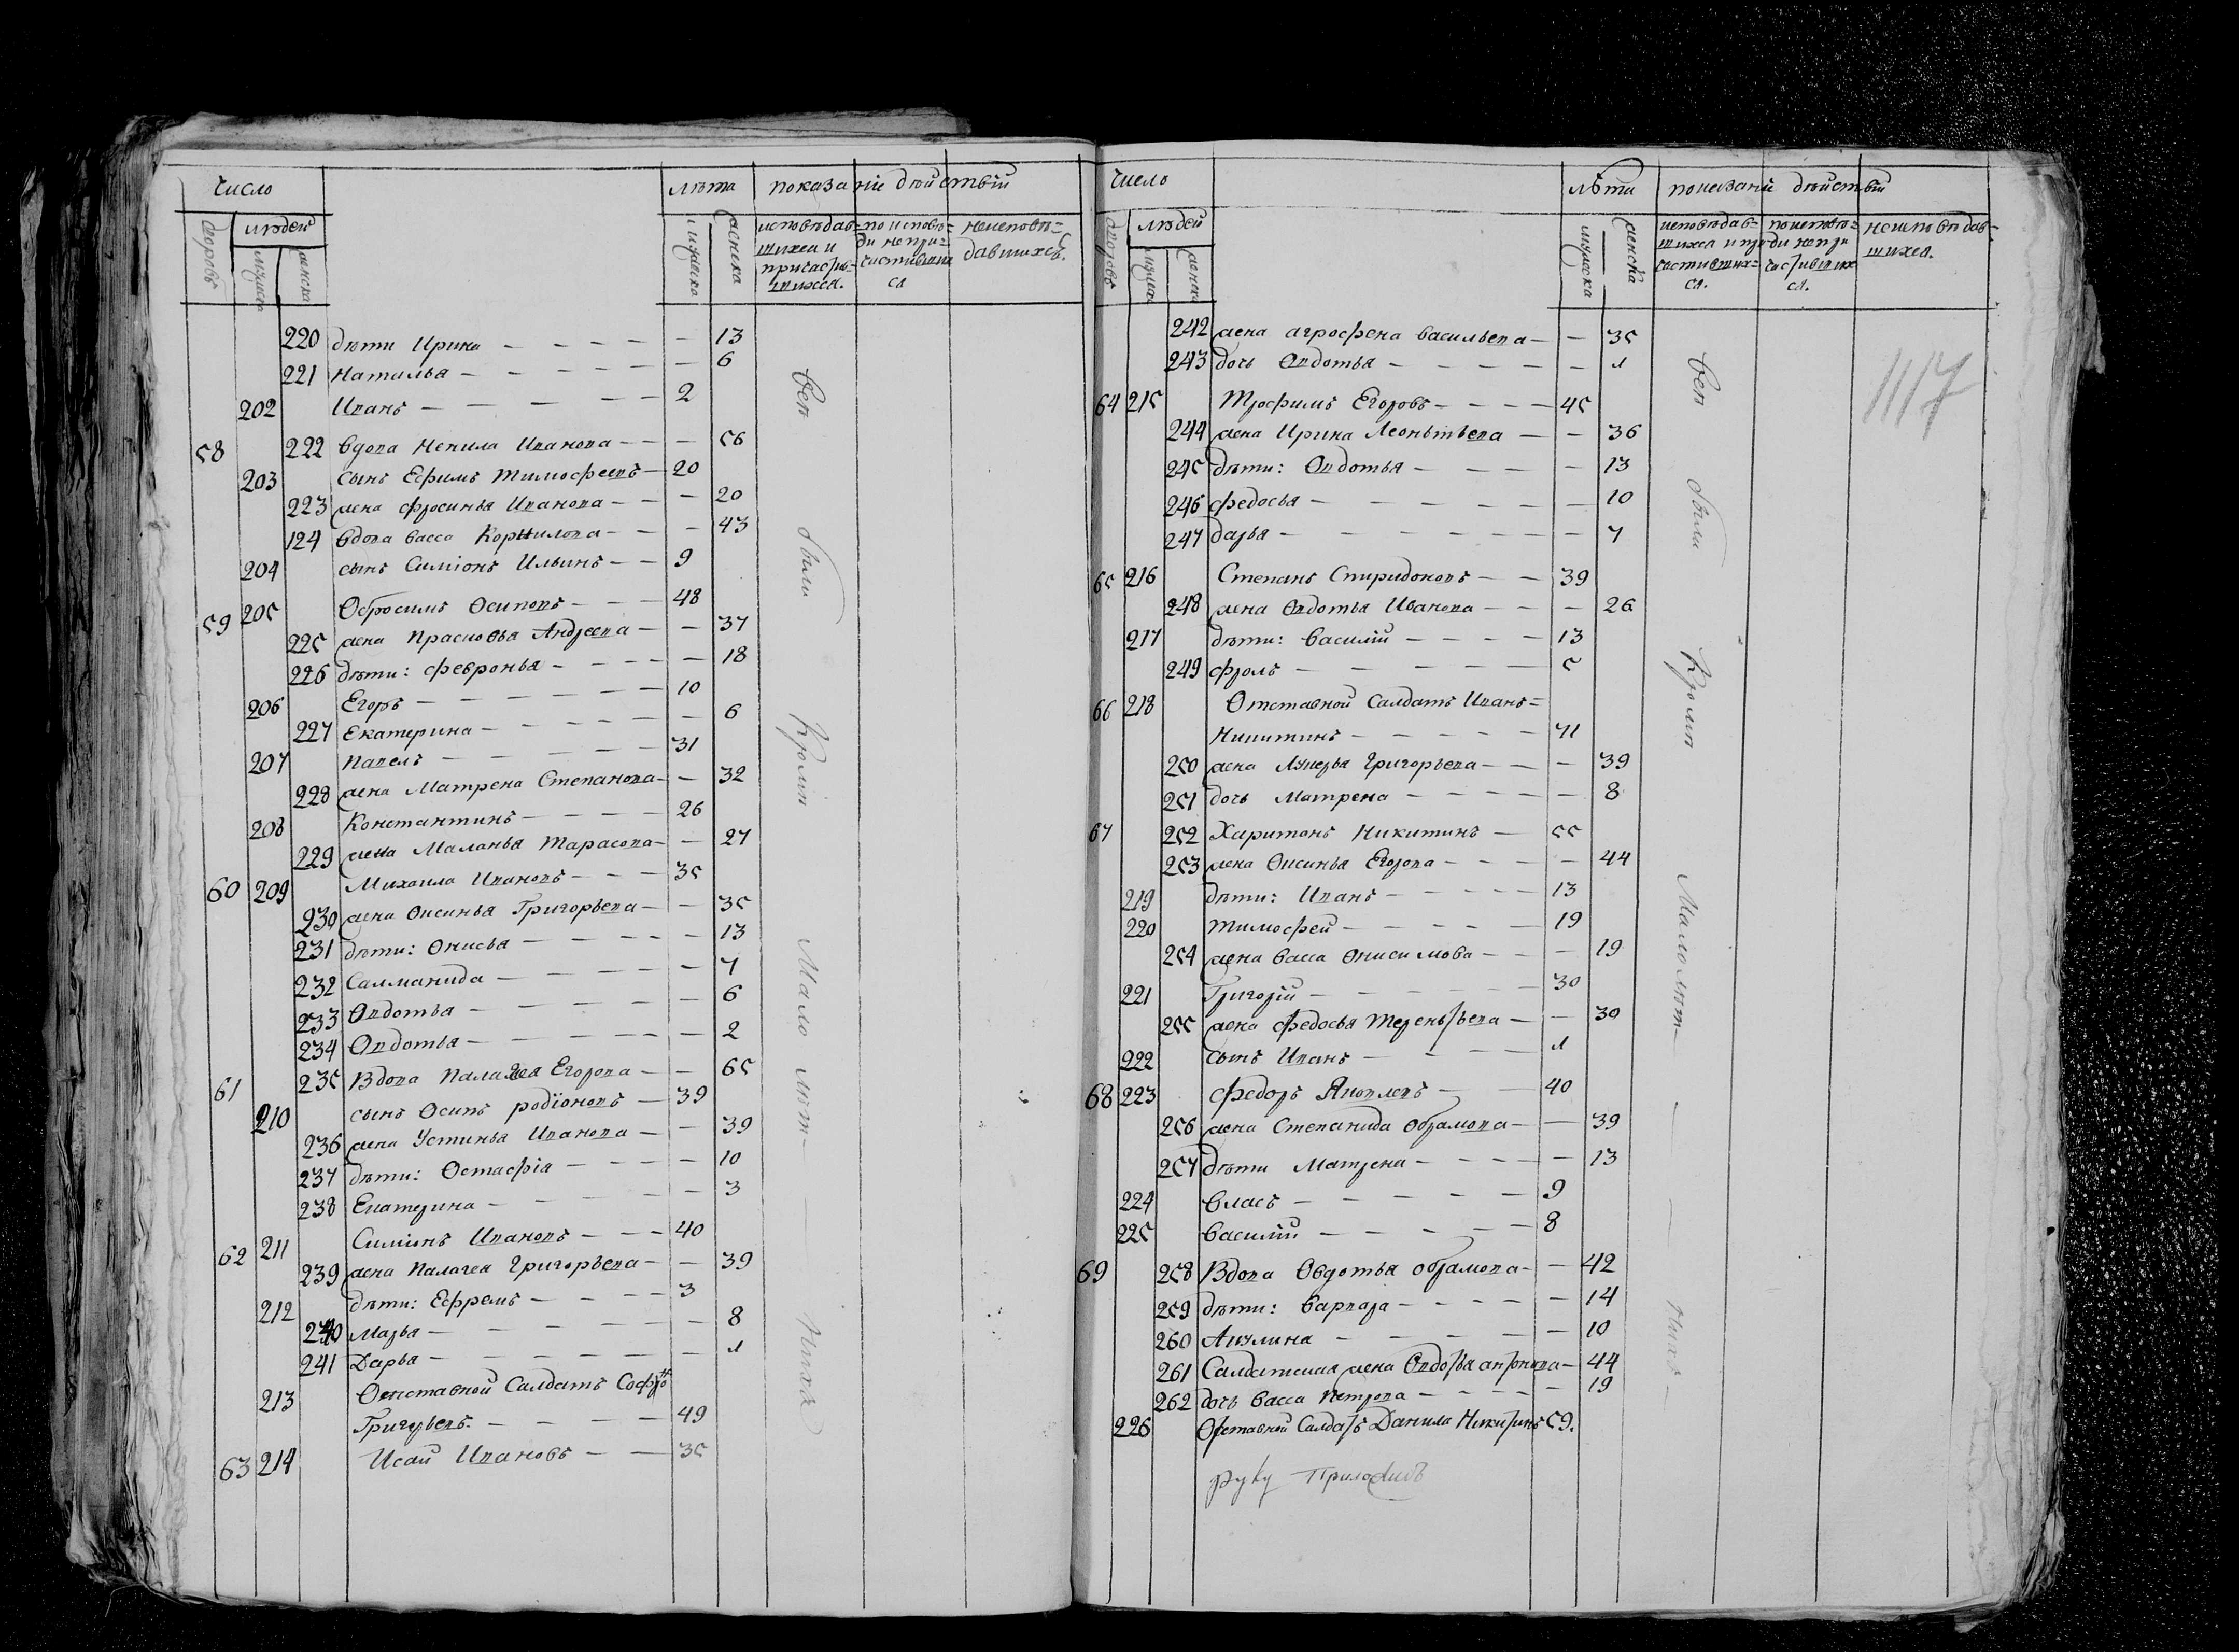 число
лѣта
показаніе дѣйствій
дворовъ
людей
мужеска
женска
мужеска
женска
исповѣдав=
шихся и
причастив=
шихся.
по исповѣ=
ди не при=
частивших
ся
неисповѣ=
давшихся.
220 дѣти Ирина — 13
221 Наталья — 6
202 Иванъ — 2
58 222 вдова Ненила Иванова — 56
203 сынъ Ефимъ Тимофеевъ — 20
223 жена фросинья Иванова — 20
124 вдова васса Корнилова — 43
204 сынъ Симіонъ Ильинъ — 9
59 205 Обросимъ Осиповъ — 48
225 жена Прасковья Андреева — 37
226 дѣти: февронья — 18
206 Егоръ — 10
227 Екатерина — 6
207 Павелъ — 31
228 жена Матрена Степанова — 32
208 Константинъ — 26
229 жена Маланья Тарасова — 27
60 209 Михаила Ивановъ — 35
230 жена Оксинья Григорьева — 35
231 дѣти: Онисья — 13
232 Салманида — 7
233 Овдотья — 6
234 Овдотья — 2
61 235 Вдова Палагея Егорова — 65
210 сынъ Осипъ родіоновъ — 39
236 жена Устинья Иванова — 39
237 дѣти: Остафіа — 10
238 Екатерина — 3
62 211 Симіонъ Ивановъ — 40
239 жена Палагея Григорьева — 39
212 дѣти: Ефремъ — 3
240 Марья — 8
241 Дарья — 1
213 Отставной Салдатъ Софро
Григорьевъ — 49
63 214 Исай Ивановъ — 35
Вси были Кромѣ Мало лѣт
число
лѣта
показаній дѣйствій
дворовъ
людей
мужеска
женска
мужеска
женска
исповѣдав=
шихся и при
частивших=
ся.
по исповѣ=
ди не при
частивших
ся.
неисповѣдав=
шихся.
1117
242 жена агрофена васильева — 35
243 дочь Овдотья — 1
64 215 Трофимъ Егоровъ — 45
244 жена Ирина Леонтьева — 36
245 дѣти: Овдотья — 13
246 федосья — 10
247 дарья — 7
65 216 Степанъ Спиридоновъ — 39
248 жена Овдотья Иванова — 26
217 дѣти: василій — 13
249 фролъ — 5
66 218 Отставной Салдатъ Иванъ=
Никитинъ — 71
250 жена Лукерья Григорьева — 39
251 дочь Матрена — 8
67 252 Харитонъ Никитинъ — 55
253 жена Оксинья Егорова — 44
219 дѣти: Иванъ — 13
220 тимофей — 19
254 жена васса Онисимова — 19
221 Григорій — 30
255 жена федосья Терентьева — 30
222 сынъ Иванъ — 1
68 223 федоръ Яковлевъ — 40
256 жена Степанида обрамова — 39
257 дѣти Матрена — 13
224 власъ — 9
225 василій — 8
69 258 Вдова Овдотья обрамова — 42
259 дѣти: варвара — 14
260 Акулина — 10
261 Салдатская жена Овдотья антонова — 44
262 дочь васса Петрова — 19
226 Отставной Салдатъ Данила Никитинъ 59.
Вси были Кромѣ Малолѣт
руку Приложилъ